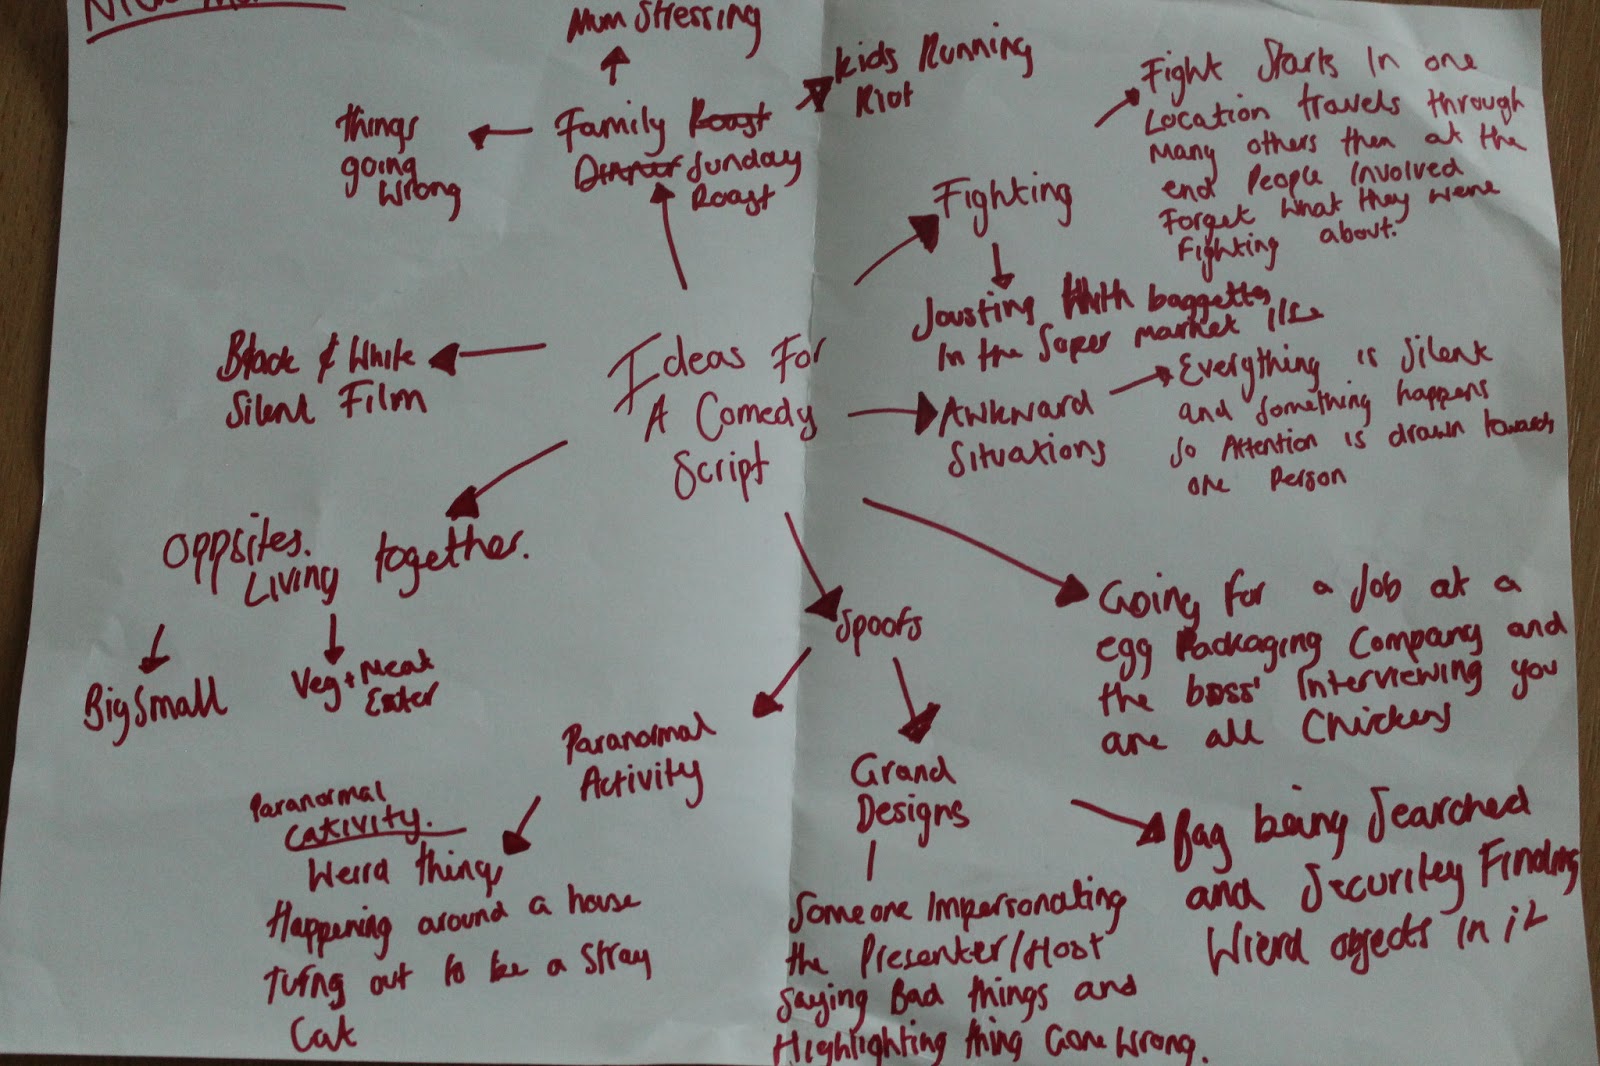 Mum Stressing
Kids Running
Riot
things
going
wrong
Family Roast
Dinner Sunday
Roast
Fight Starts In one
Location travels through
many others then at the
end People Involved
Forget what they were
Fighting about.
Fighting
Jousting With baggetts
In the Super market
Black & White
Silent Film
Ideas For
A Comedy
Script
Awkward
Situations
Everything is Silent
and Something happens
So Attention is drawn towards
one Person
Oppsites.
Living together.
Big Small
Veg + Meat
Eater
Spoofs
Going for a Job at a
egg Packaging Company and
the boss' Interviewing you
are all Chickens
Paranormal
Activity
Paranormal
Cativity.
Weird things
Happening around a house
turing out to be a Stray
Cat
Grand
Designs
Someone Impersonating
the Presenter/Host
Saying Bad things and
Highlighting thing Gone Wrong.
Bag being Searched
and Security Finding
Wierd objects in it